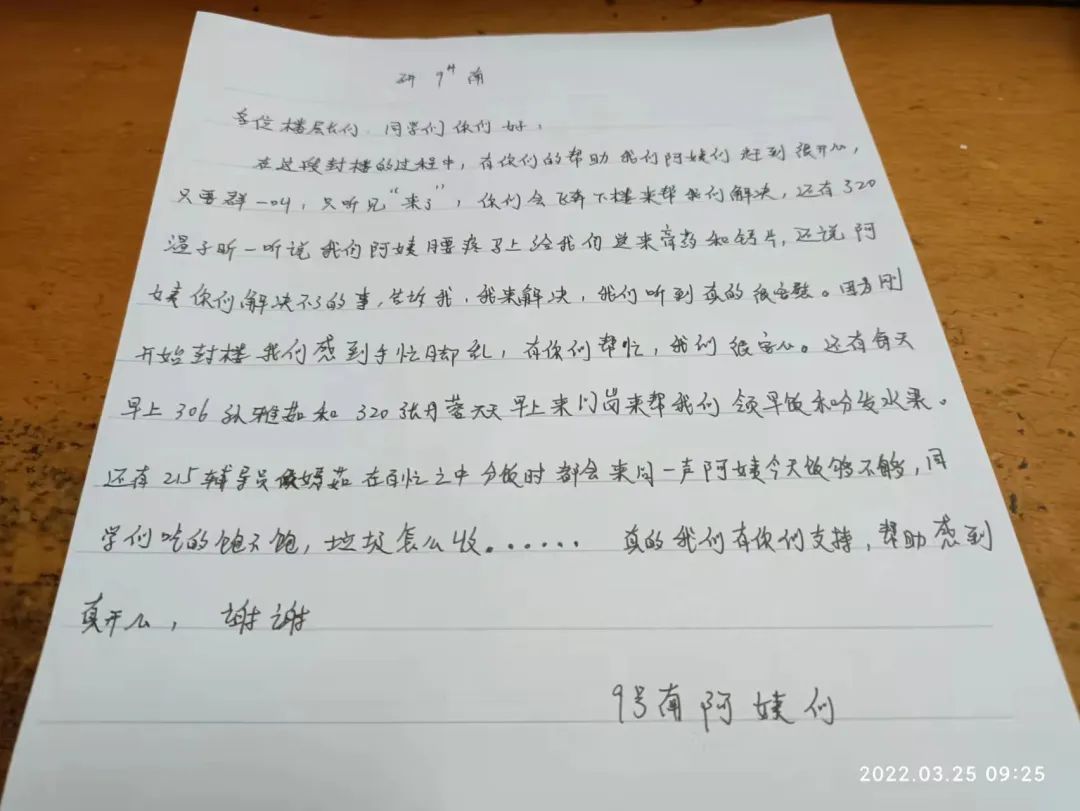 研9#南
各位楼层长们、同学们你们好,
在这段封楼的过程中,有你们的帮助我们阿姨们赶到很开心,
只要群一叫,只听见“来了”,你们会飞奔下楼来帮我们解决,还有320
昕一听说我们阿姨腰疼马上给我们送来膏药和钙片,还说阿
姨你们解决不了的事,告诉我,我来解决,我们听到真的很感动。因为刚
开始封楼我们感到手忙脚乱,有你们帮忙,我们很安心。还有每天
早上306孙雅茹和320张丹蓉天天早上来门岗来帮我们领早饭和分发水果。
还有215辅导员婷茹在百忙之中分饭时都会来问一声阿姨今天饭够不够,同
学们吃的饱不饱,垃圾怎么收。······ 真的我们有你们支持,帮助感到
真开心, 谢谢
9号南阿姨们
2022.03.25 09:25